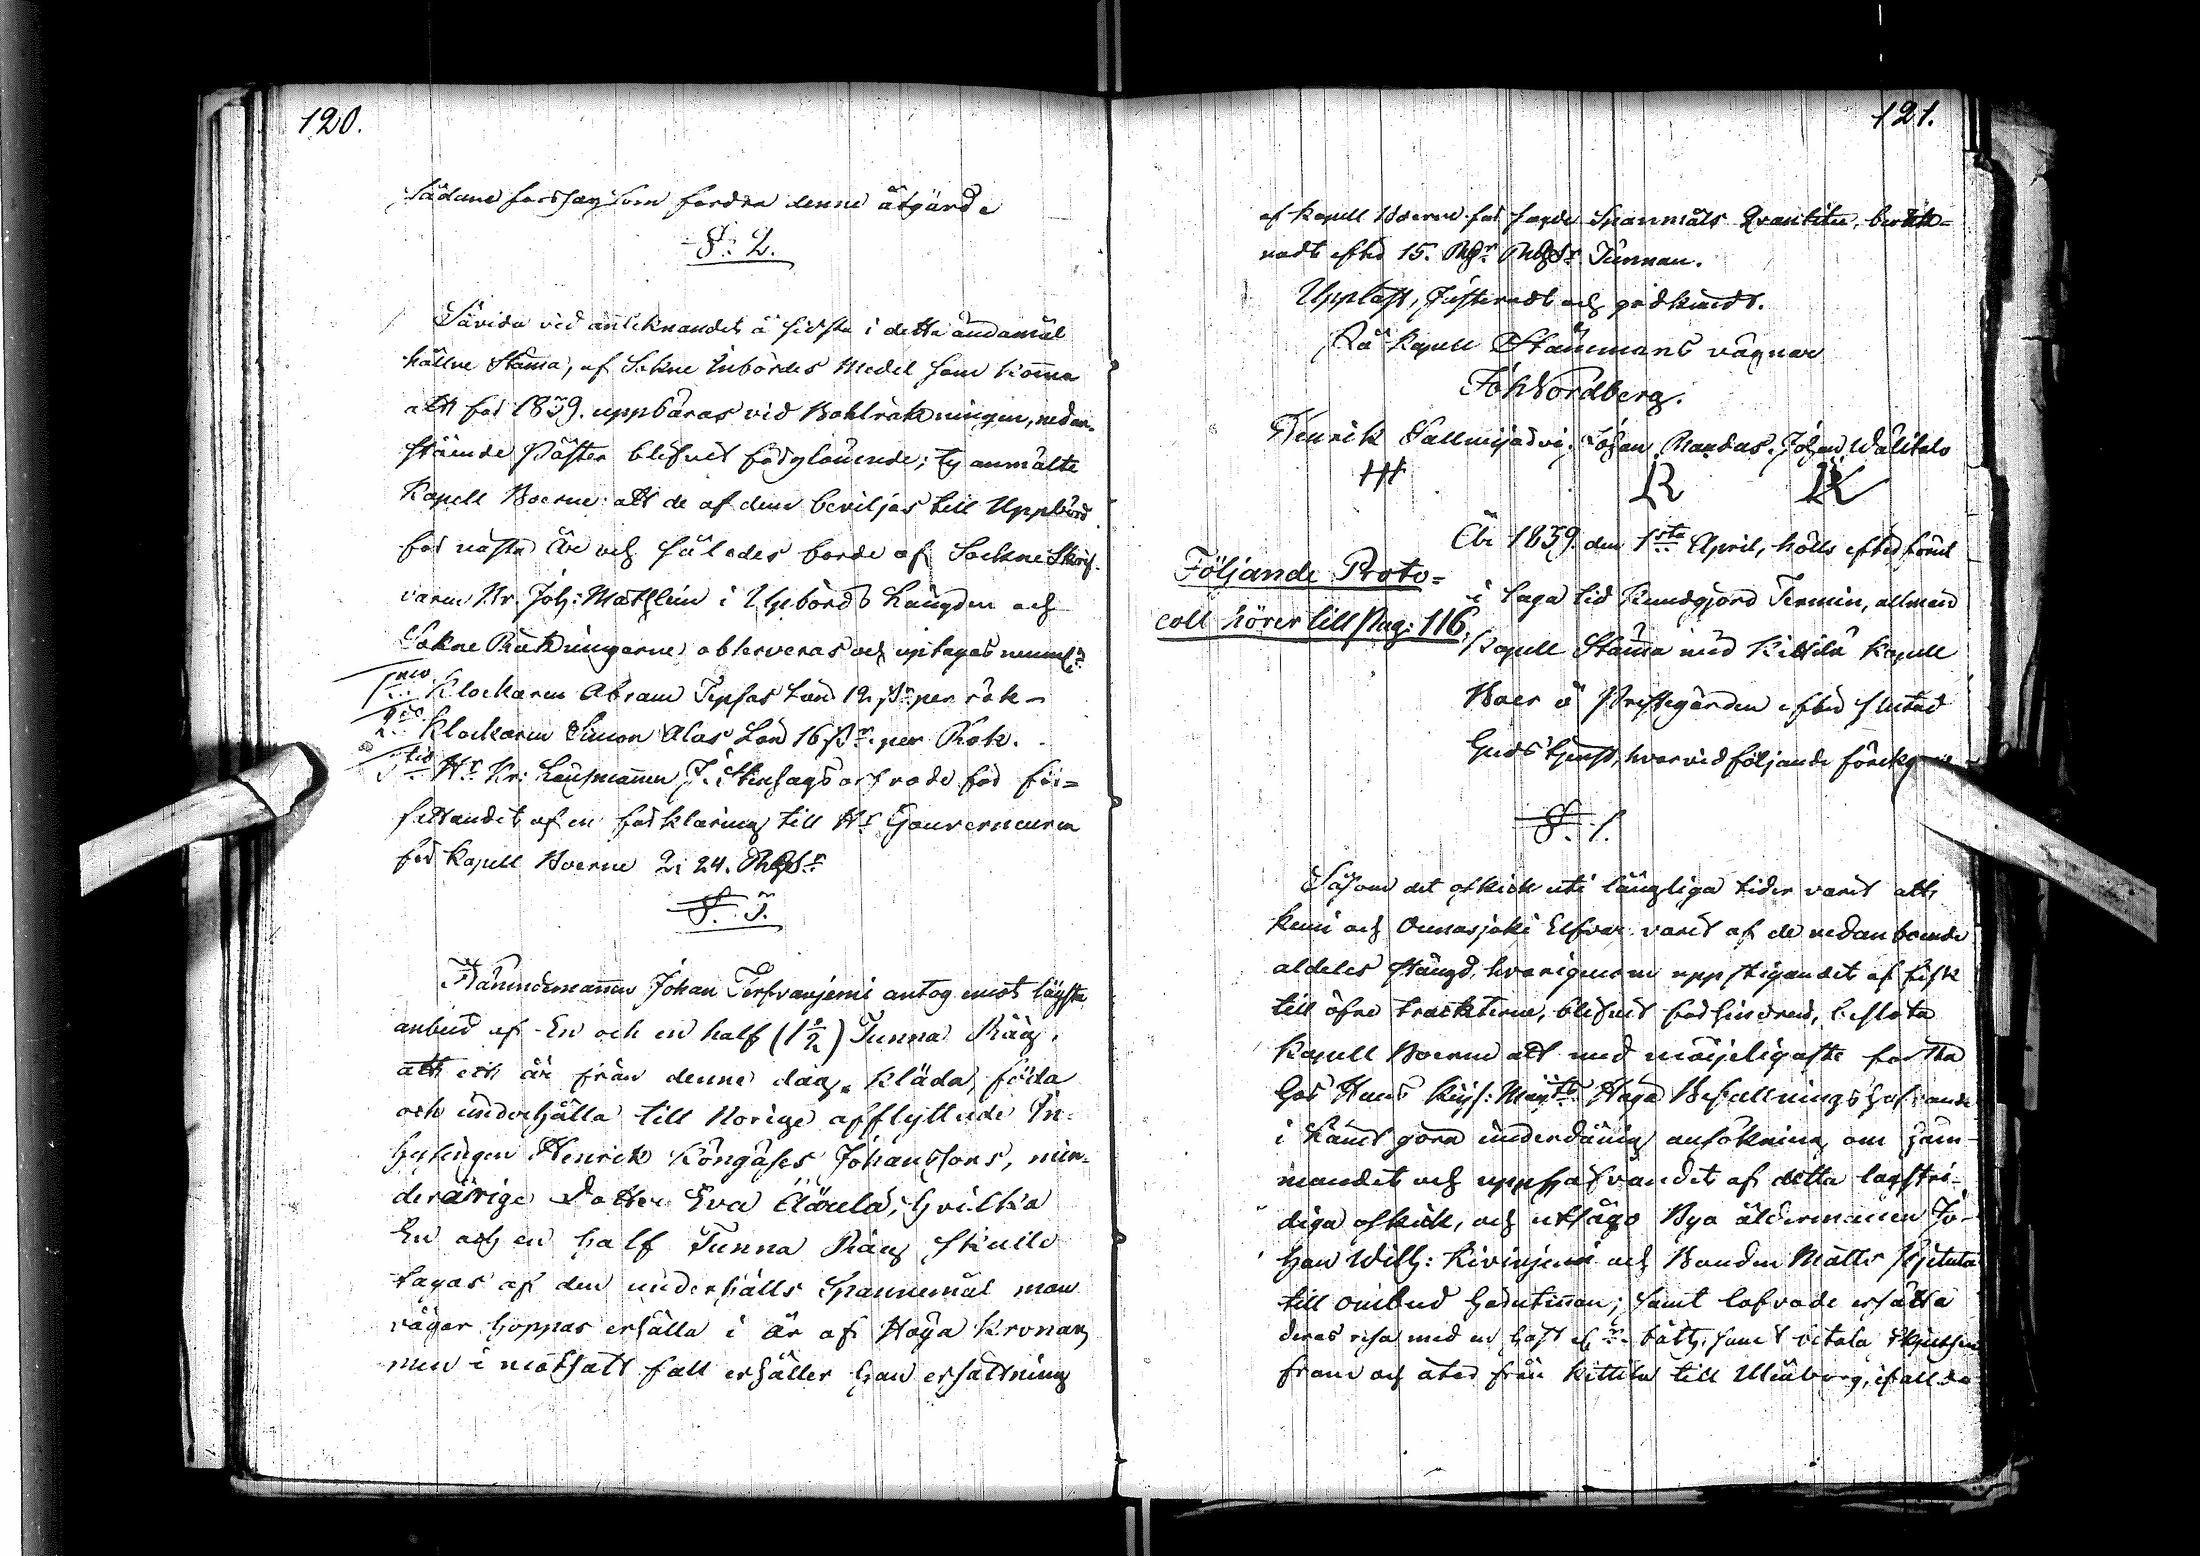 120.
sådane förslag som fordra denne åtgärd.
§. 2.
Såvida vid antecknandet å sidsta i detta ändamål
hållne Stämma, af Sokne Inbördes Medel som komma
att för 1839. uppbäras vid Bohlräkningen, nedan-
stående Påster blifvit förglömde; ty anmälte
Kapell Boerne: att de af dem beviljas till Uppbörd
för nästa år och således borde af Sockne Skrif-
varen Hr. Joh: Mathlein i Upbörds Längden och
Sokne Räkningarne observeras och uptagas nemml:n
1mo Klockaren Abram Lön 12 per rök –
2do Klockaren Simon Alas Lön 16 per Rök.
3tio Hr Kr: Länsmannen J. arfvode för för=
fattandet af en förklaring till Hr Gouverneuren
för Kapell Boerne 2: 24.
§. 3.
Nämndemannen Johan Terfvaniemi antog emot lägsta
anbud af En och en half (1 1/2) Tunna Råg,
att ett år från denne dag, kläda, föda
och underhålla till Norige afflyttade In-
hysingen Henrik Köngäses Johanssons, min-
derårige Dotter Eva hvilka
En och en half Tunna Råg skulle
tagas af den underhålls Spannemål man
vågar hoppas erhålla i år af Höga Kronan,
men i motsatt fall erhåller han ersättning
121.
af Kapell Boerne för sagde Spannmåls Qvantitee, beräk=
nadt efter 15. Tunnan.
Uppläst, Justeradt och godkändt.
På Kapell Stämmans vägnar
Joh Nordberg.
Henrik Johan Johan Wälitalo
Följande Proto=
coll hörer till Pag: 116.
År 1839. den 1sta April, hölls efter förut
i laga tid kundgjord Termin, allmän
Kapell Stämma med Kittilä Kapell
Boer å Prestegården efter slutad
Guds tjenst, hvarvid följande förekom
§. 1.
Såsom det oskick uti långliga tider varit att
Kemi och Ounasjoki Elfvar varit af de nedanboende
aldeles stängd, hvarigenom uppstigandet af fisk
till öfre trackterne, blifvit förhindrad, besloto
Kapell Boerne att med möjeligaste första
hos Hans Keys: Maj:ts Höga Befallningshafvande
i Länet göra underdånig ansökning om häm-
mandet och upphäfvandet af detta lagstri-
diga oskick, och utsågo Bya åldermannen Jo-
han Wilh: Kivinjemi och Bonden Matts
till ombud härutinnan; samt lofvade ersätta
deras resa med en häst båth, samt betala skjutsen
fram och åter från Kittilä till Uleåborg, ifall de